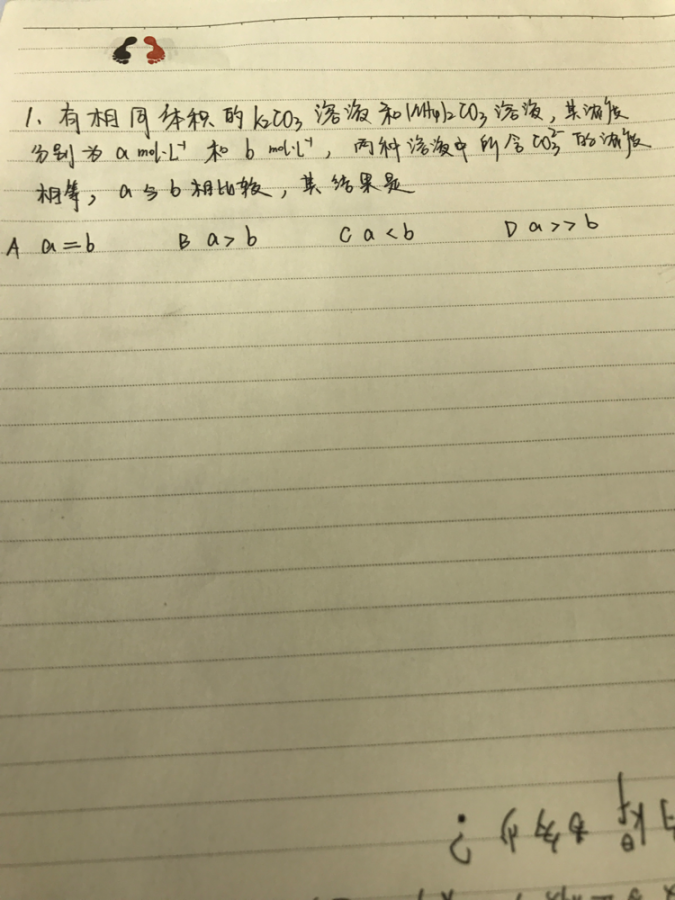 1、有相同体积的K₂CO₃溶液和(NH₄)₂CO₃溶液,其浓度
分别为 a mol·L⁻¹ 和 b mol·L⁻¹,两种溶液中所含CO₃²⁻的浓度
相等,a与b相比较,其结果是
A a=b B a>b C a<b D a>>b
为多少?